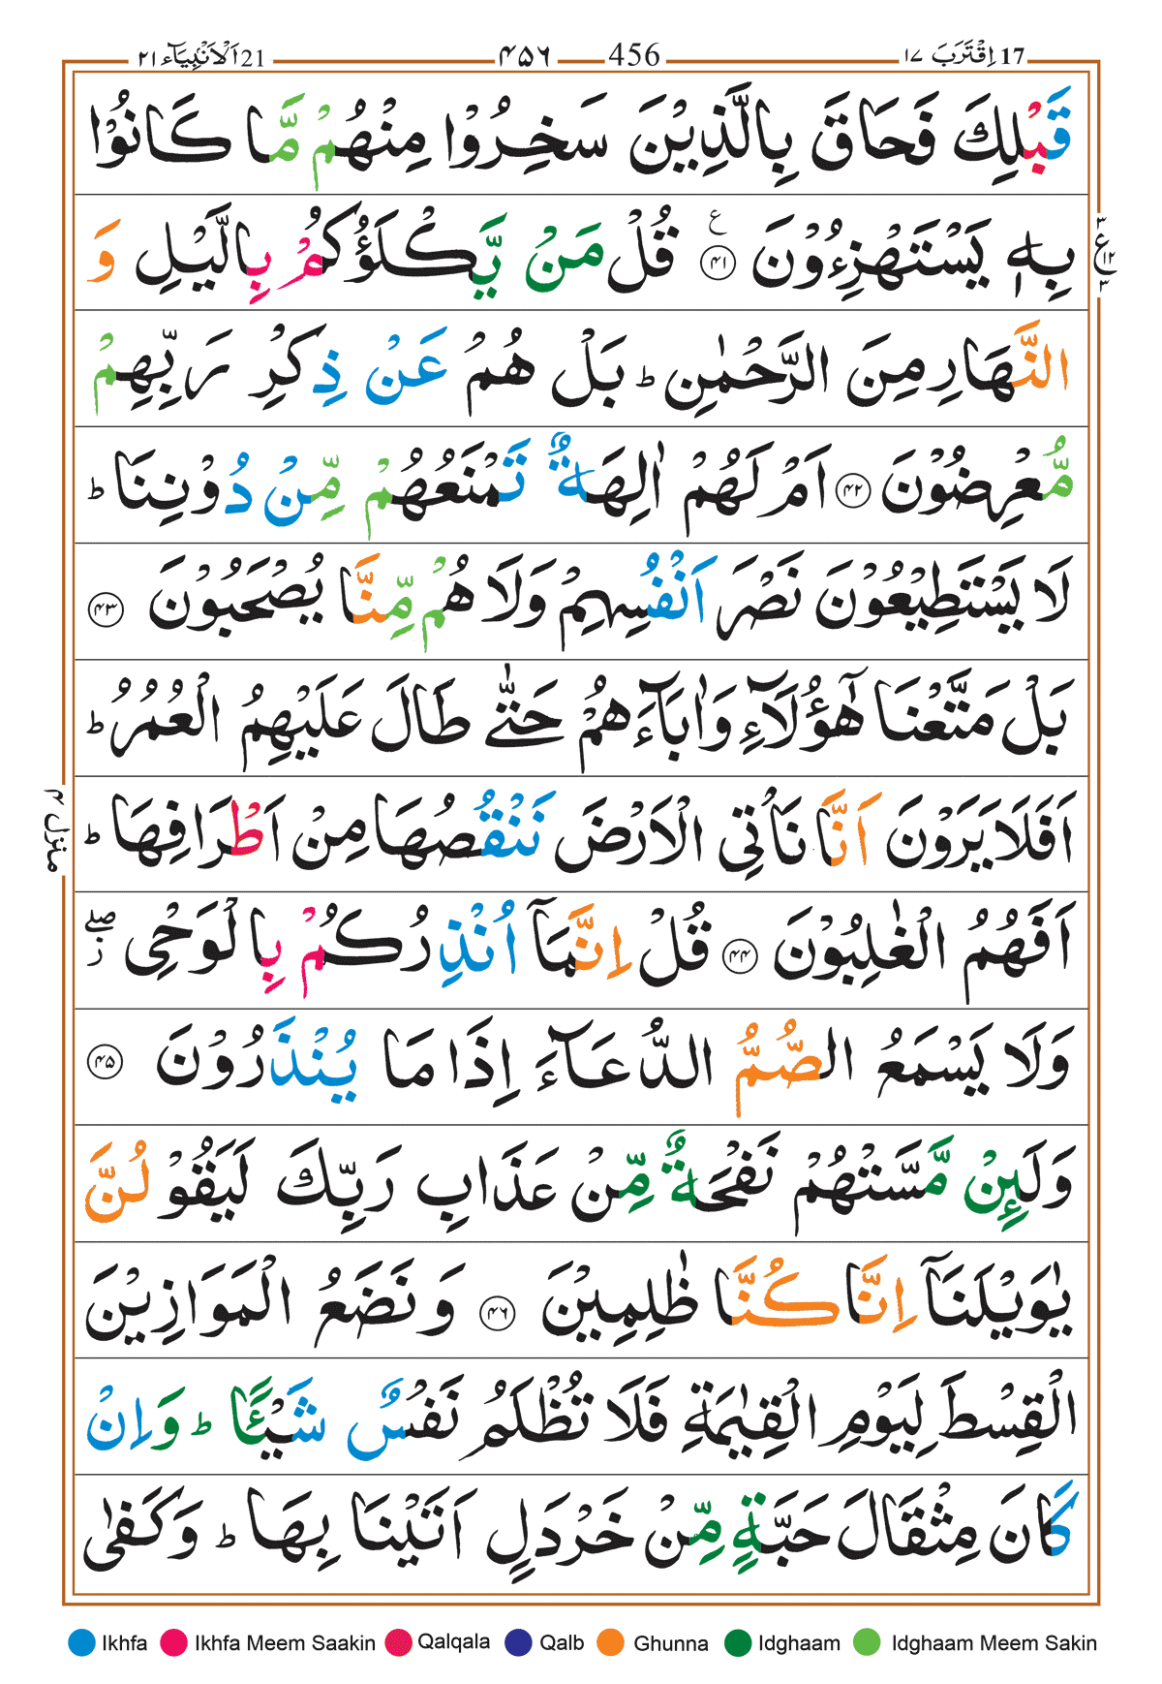 17 اِقْتَرَبَ ١٧ 456 ۴۵۶ 21 اَلْاَنْۢبِيَآء ٢١
قَبْلِكَ فَحَاقَ بِالَّذِيْنَ سَخِرُوْا مِنْهُمْ مَّا كَانُوْا
بِهٖ يَسْتَهْزِءُوْنَ ﴿۴۱﴾ ع قُلْ مَنْ يَّكْلَؤُكُمْ بِالَّيْلِ وَ
ع ٣ ١٢ ٣
النَّهَارِ مِنَ الرَّحْمٰنِ ؕ بَلْ هُمْ عَنْ ذِكْرِ رَبِّهِمْ
مُّعْرِضُوْنَ ﴿۴۲﴾ اَمْ لَهُمْ اٰلِهَةٌ تَمْنَعُهُمْ مِّنْ دُوْنِنَا ؕ
لَا يَسْتَطِيْعُوْنَ نَصْرَ اَنْفُسِهِمْ وَلَا هُمْ مِّنَّا يُصْحَبُوْنَ ﴿۴۳﴾
بَلْ مَتَّعْنَا هٰۤؤُلَآءِ وَاٰبَآءَهُمْ حَتّٰى طَالَ عَلَيْهِمُ الْعُمُرُ ؕ
اَفَلَا يَرَوْنَ اَنَّا نَاْتِى الْاَرْضَ نَنْقُصُهَا مِنْ اَطْرَافِهَا ؕ
منزل ۴
اَفَهُمُ الْغٰلِبُوْنَ ﴿۴۴﴾ قُلْ اِنَّمَاۤ اُنْذِرُكُمْ بِالْوَحْىِ ۖ ز
وَلَا يَسْمَعُ الصُّمُّ الدُّعَآءَ اِذَا مَا يُنْذَرُوْنَ ﴿۴۵﴾
وَلَئِنْ مَّسَّتْهُمْ نَفْحَةٌ مِّنْ عَذَابِ رَبِّكَ لَيَقُوْلُنَّ
يٰوَيْلَنَاۤ اِنَّا كُنَّا ظٰلِمِيْنَ ﴿۴۶﴾ وَنَضَعُ الْمَوَازِيْنَ
الْقِسْطَ لِيَوْمِ الْقِيٰمَةِ فَلَا تُظْلَمُ نَفْسٌ شَيْـًٔا ؕ وَاِنْ
كَانَ مِثْقَالَ حَبَّةٍ مِّنْ خَرْدَلٍ اَتَيْنَا بِهَا ؕ وَكَفٰى
Ikhfa Ikhfa Meem Saakin Qalqala Qalb Ghunna Idghaam Idghaam Meem Sakin